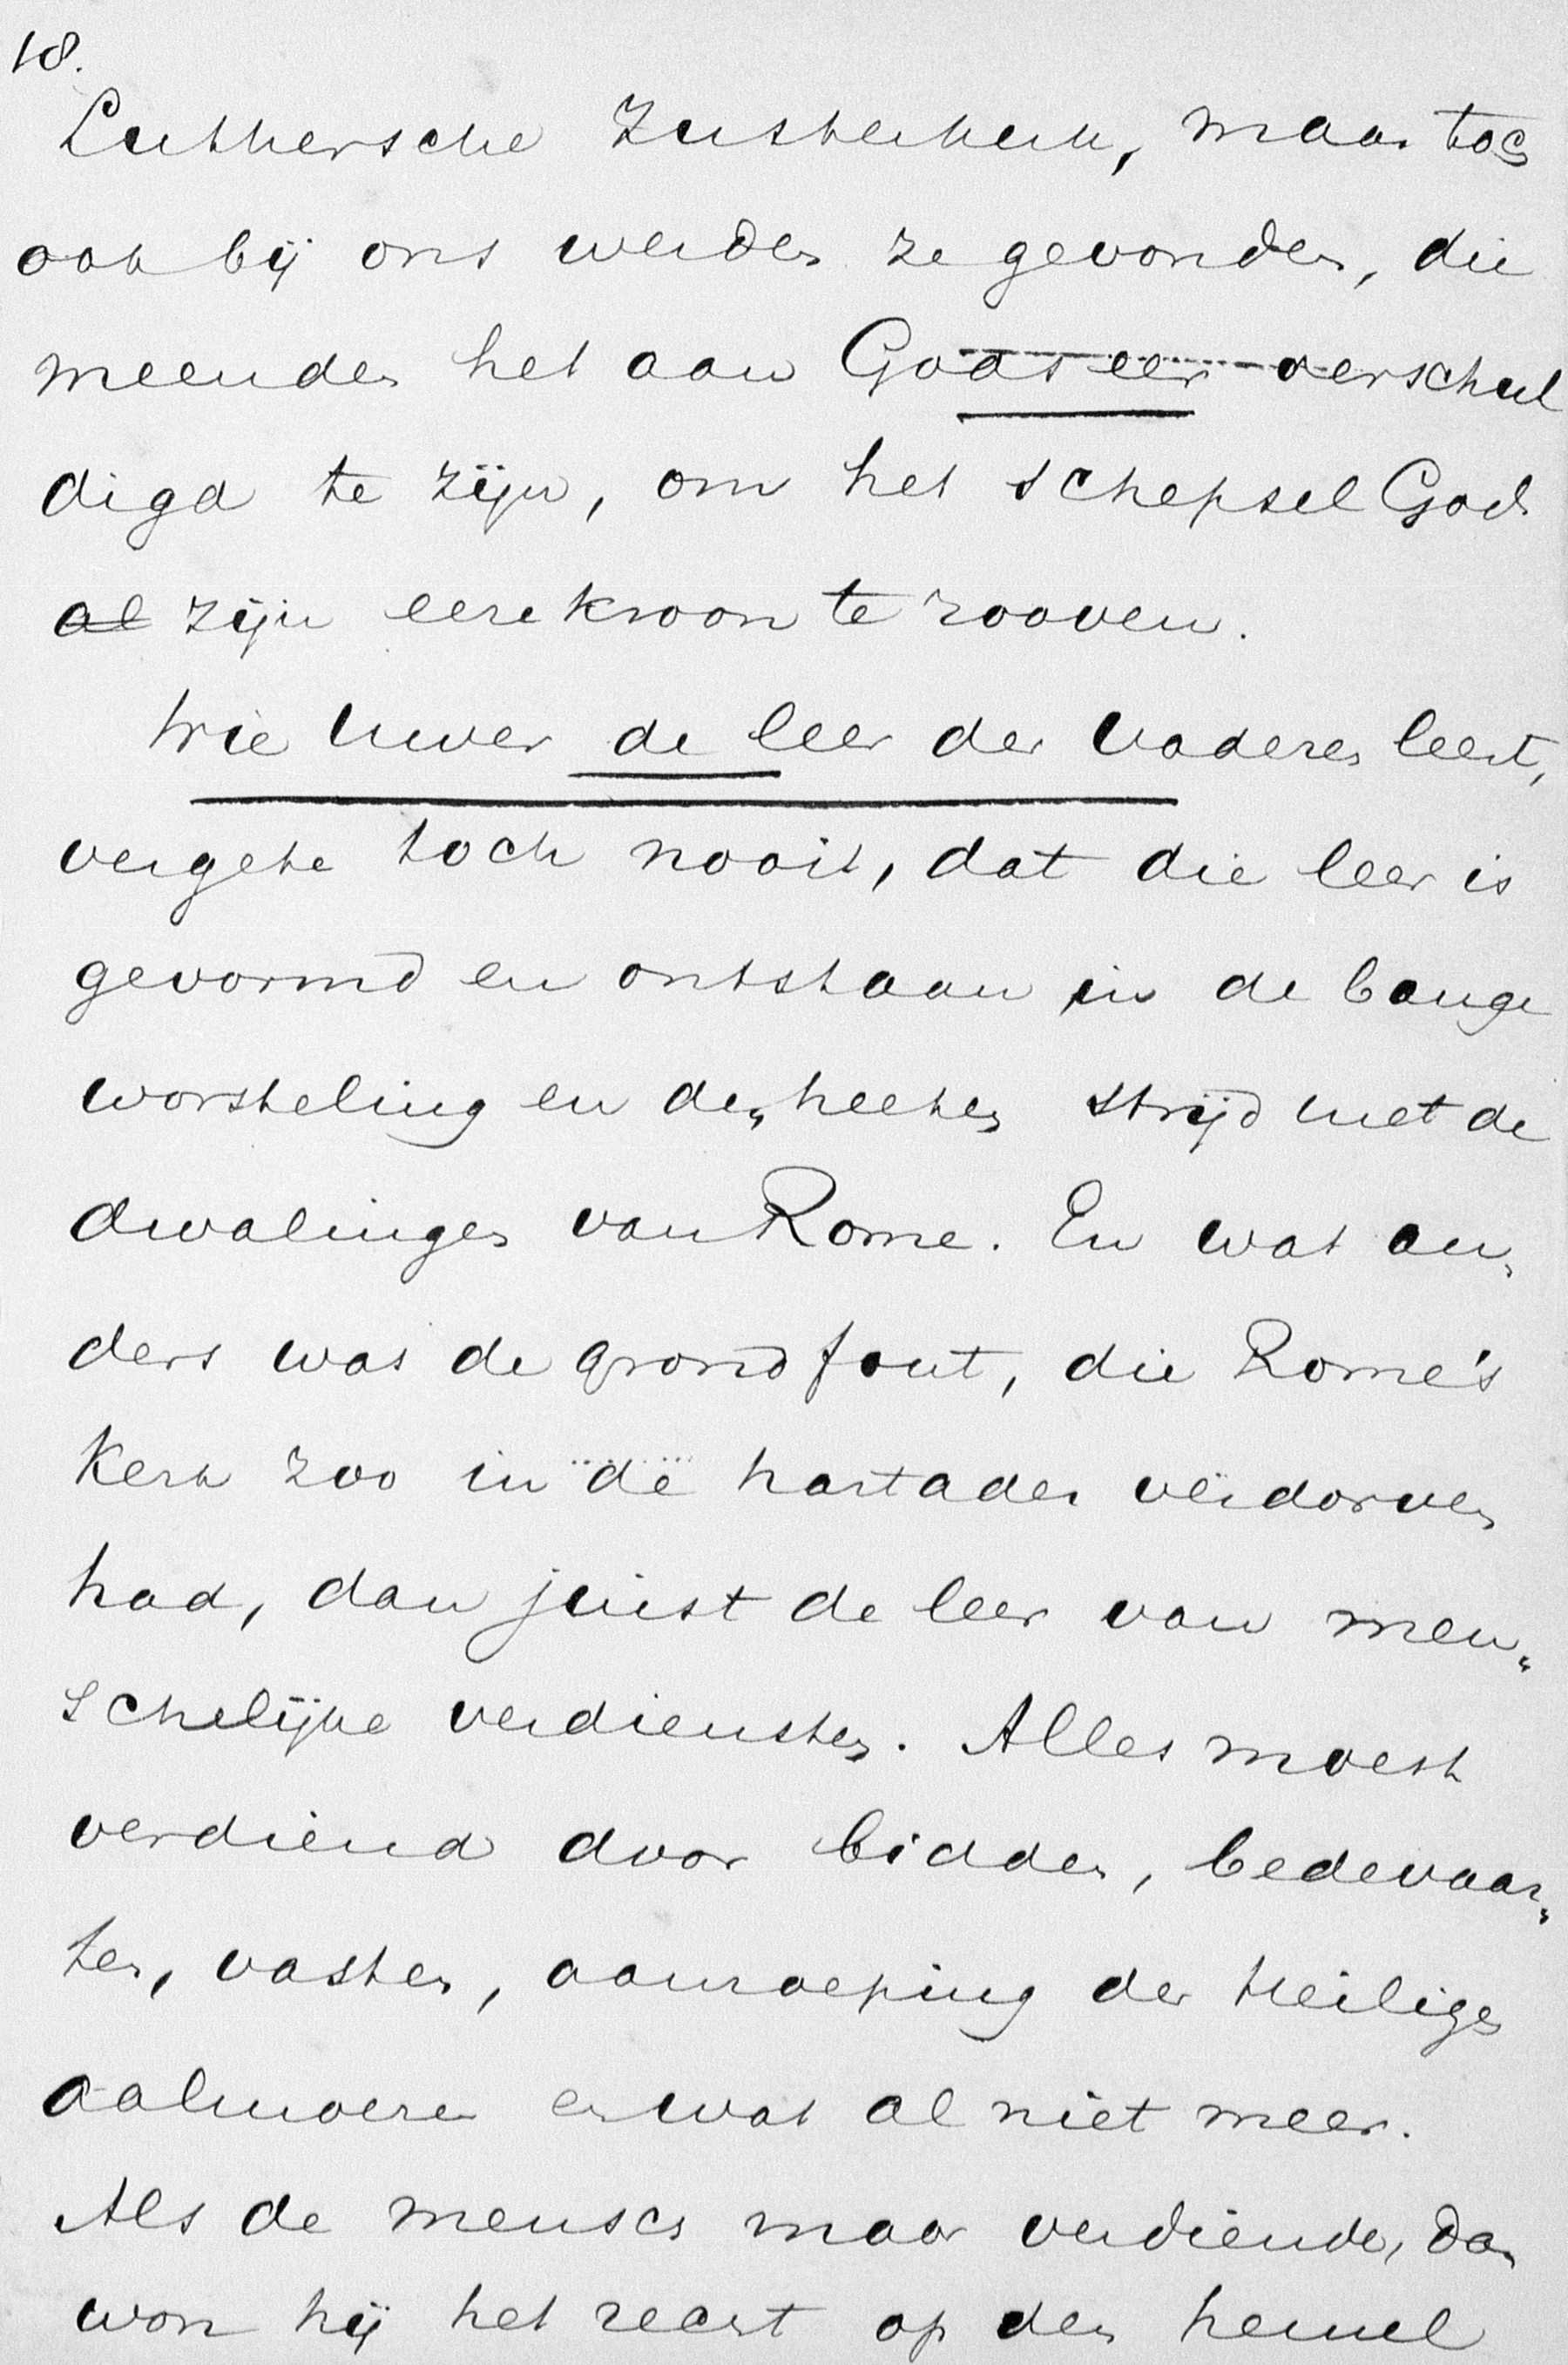 18.
Luthersche Zusterkerk, maar toch
ook bij ons werden ze gevonden, die
meenden het aan Gods eer verschul
digd te zijn, om het schepsel Gods
al zijn eerekroon te rooven.
Wie Uwer de leer der Vaderen leest,
vergete toch nooit, dat die leer is
gevormd en ontstaan in de bange
worsteling en den heeten strijd met de
dwalingen van Rome. En wat an„
ders was de grondfout, die Rome's
Kerk zoo in de hartader verdorven
had, dan juist de leer van men„
schelijke verdiensten. Alles moest
verdiend door bidden, bedevaar„
ten, vasten, aanroeping der Heiligen
aalmoezen en wat al niet meer.
Als de mensch maar verdiende, dan
won hij het recht op den hemel